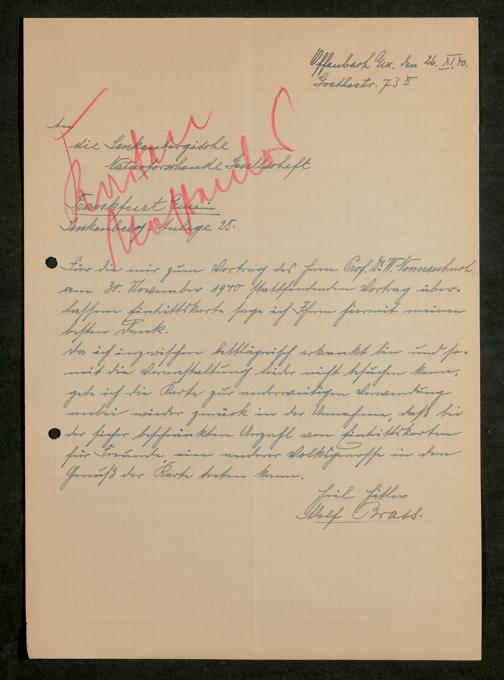 Offenbach a/M. den 26. XI. 40.
Goethestr. 73 II
An
die Senkenbergische
Naturforschende Gesellschaft
Frankfurt Main
Senkenberg-Anlage 25.
Für die mir zum Vortrag des Herrn Prof. Dr. W.
am 30. November 1940 stattfindenden Vortrag über-
lassene Eintrittskarte sage ich Ihnen hiermit meinen
besten Dank.
Da ich inzwischen bettlägrisch erkrankt bin und so-
mit die Veranstaltung leider nicht besuchen kann,
gebe ich die Karte zur anderweitigen Verwendung
anbei wieder zurück in der Annahme, daß bei
der sicher beschränkten Anzahl von Eintrittskarten
für Freunde, ein anderer Volksgenosse in den
Genuß der Karte treten kann.
Heil Hitler
Adolf Brass.